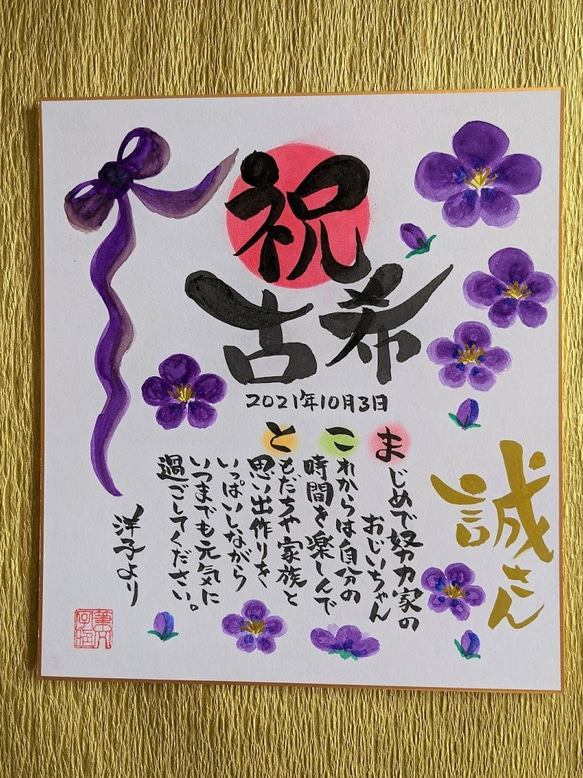 祝
古希
2021年10月3日
誠さん
まじめで努力家の
おじいちゃん
これからは自分の
時間を楽しんで
ともだちや家族と
思い出作りを
いっぱいしながら
いつまでも元気に
過ごしてください。
洋子より